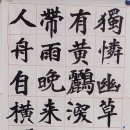 獨憐幽草
有黄鸝深
帶雨晚来
人舟自横